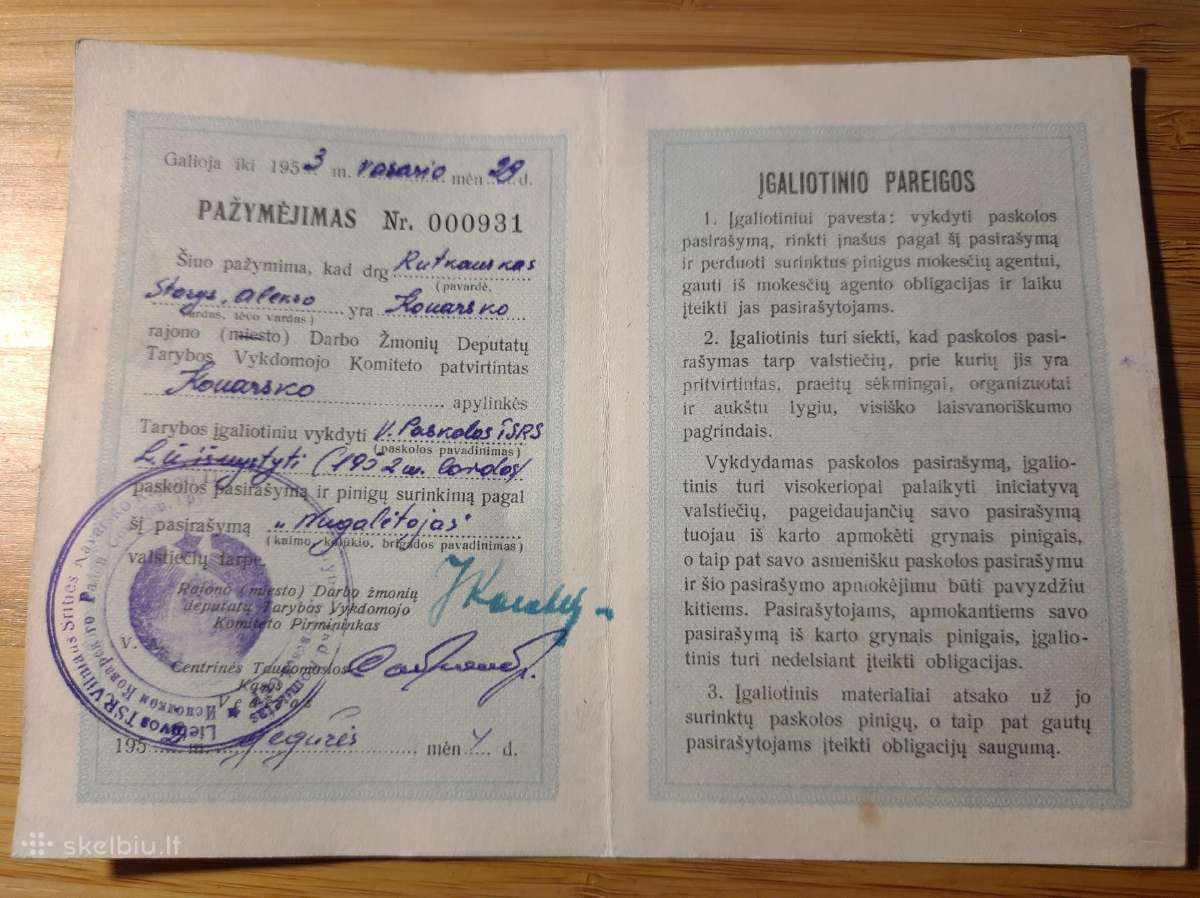 Galioja iki 1953 m. vasario mėn. 29 d.
PAŽYMĖJIMAS Nr. 000931
Šiuo pažymima, kad drg Rutkauskas
(pavardė,
Stasys, Alekso yra Kovarsko
vardas, tėvo vardas)
rajono (miesto) Darbo Žmonių Deputatų
Tarybos Vykdomojo Komiteto patvirtintas
Kovarsko apylinkės
Tarybos įgaliotiniu vykdyti V. Paskolos TSRS
(paskolos pavadinimas)
L. ū. išvystyti (1952 m. laidos)
paskolos pasirašymą ir pinigų surinkimą pagal
šį pasirašymą „Nugalėtojas"
(kaimo, kolūkio, brigados pavadinimas)
valstiečių tarpe.
Rajono (miesto) Darbo žmonių
deputatų Tarybos Vykdomojo
Komiteto Pirmininkas
V.
Centrinės Taupomosios
Kasos
195 m. Gegužės mėn. d.
Lietuvos TSR Vilniaus Srities
ĮGALIOTINIO PAREIGOS
1. Įgaliotiniui pavesta: vykdyti paskolos
pasirašymą, rinkti įnašus pagal šį pasirašymą
ir perduoti surinktus pinigus mokesčių agentui,
gauti iš mokesčių agento obligacijas ir laiku
įteikti jas pasirašytojams.
2. Įgaliotinis turi siekti, kad paskolos pasi-
rašymas tarp valstiečių, prie kurių jis yra
pritvirtintas, praeitų sėkmingai, organizuotai
ir aukštu lygiu, visiško laisvanoriškumo
pagrindais.
Vykdydamas paskolos pasirašymą, įgalio-
tinis turi visokeriopai palaikyti iniciatyvą
valstiečių, pageidaujančių savo pasirašymą
tuojau iš karto apmokėti grynais pinigais,
o taip pat savo asmenišku paskolos pasirašymu
ir šio pasirašymo apmokėjimu būti pavyzdžiu
kitiems. Pasirašytojams, apmokantiems savo
pasirašymą iš karto grynais pinigais, įgalio-
tinis turi nedelsiant įteikti obligacijas.
3. Įgaliotinis materialiai atsako už jo
surinktų paskolos pinigų, o taip pat gautų
pasirašytojams įteikti obligacijų saugumą.
skelbiu.lt